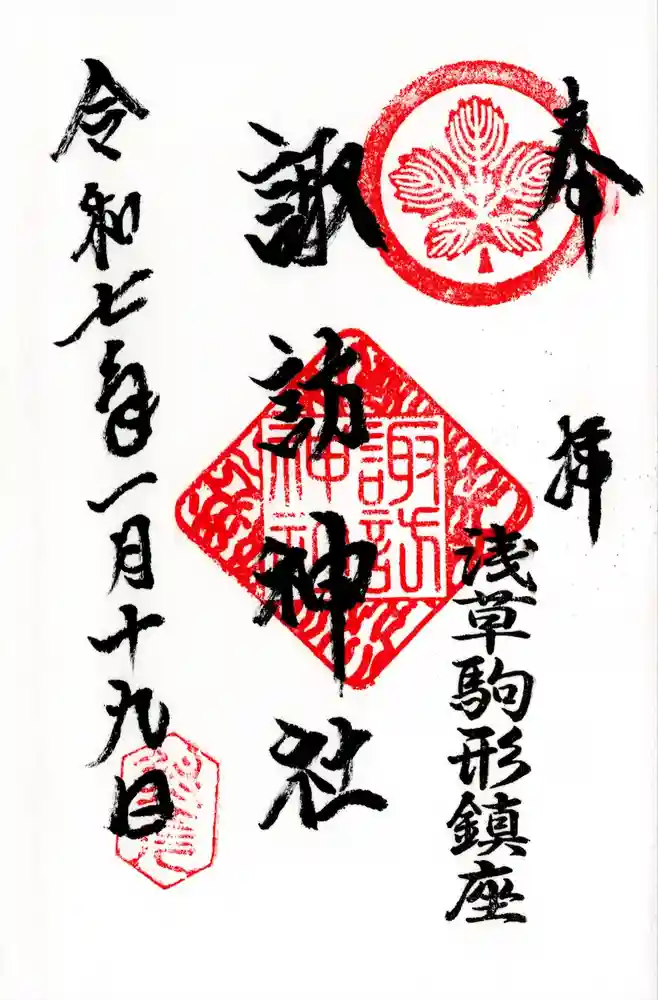 奉拝
浅草駒形鎮座
諏訪神社
諏訪神社
令和七年一月十九日